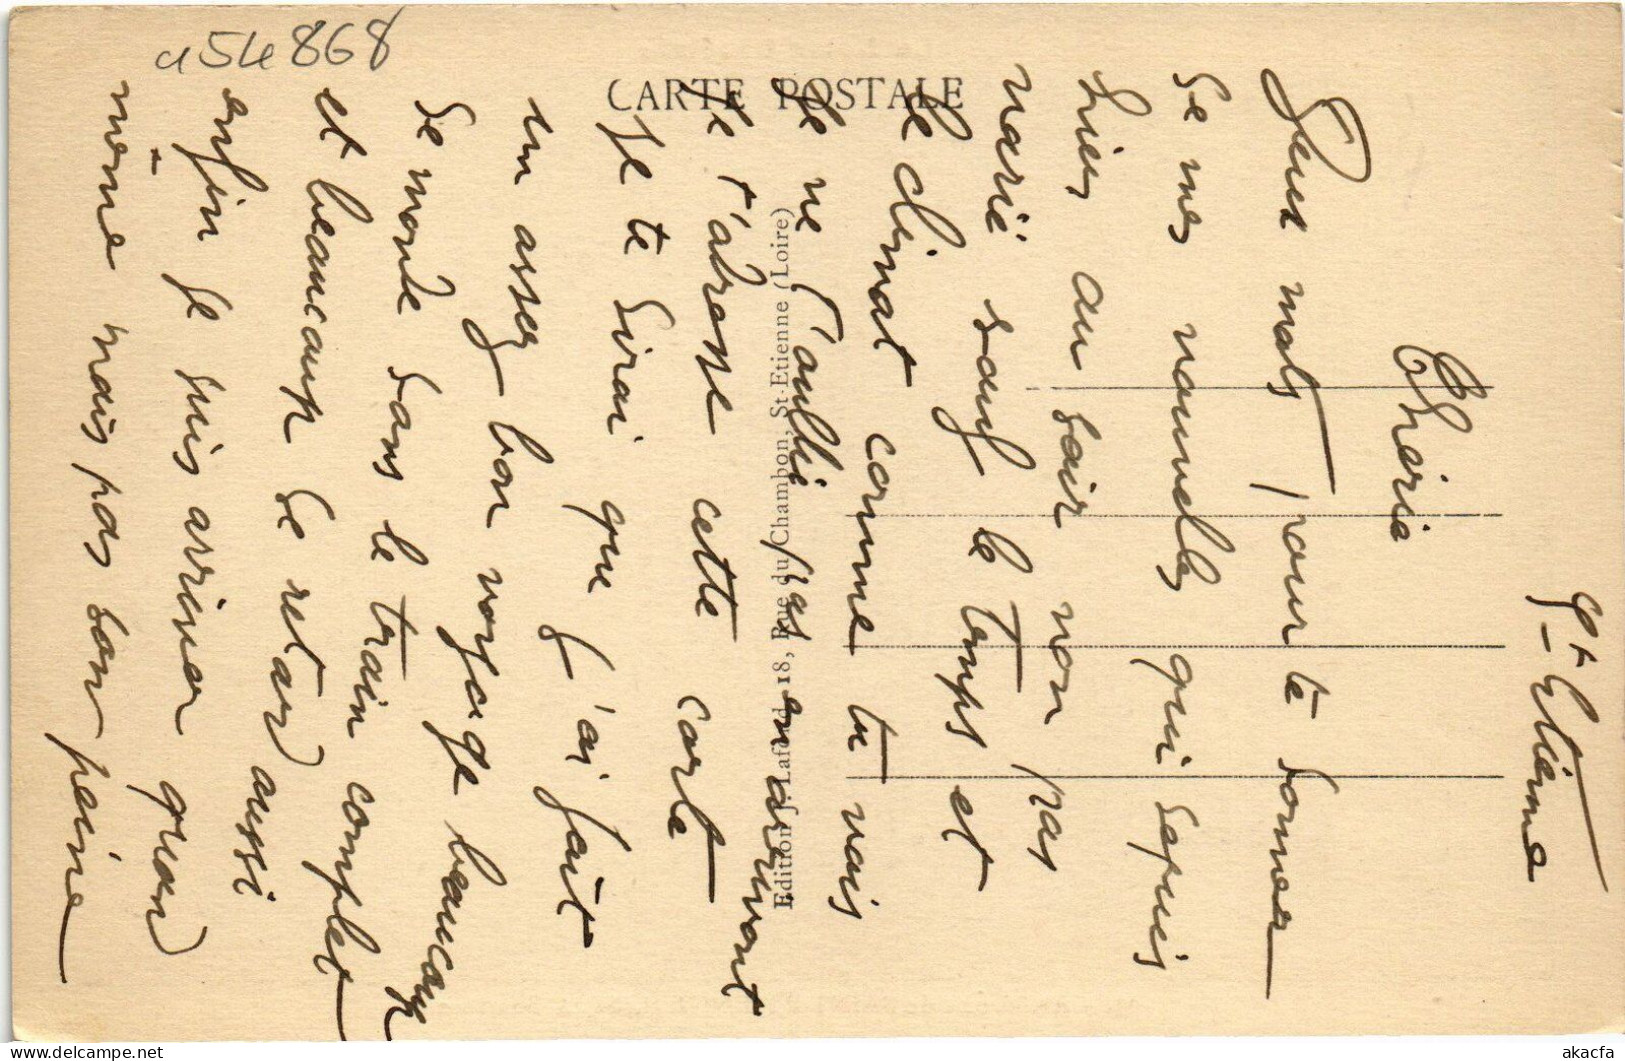 a54868
CARTE POSTALE
Edition J. Lafond, 18, Rue du Chambon, St-Etienne (Loire)
St-Etienne
Chérie
Deux mots pour te donner
de mes nouvelles qui depuis
hier au soir non pas
varié sauf le temps et
le climat comme tu vois
je ne t'oublie pas en arrivant
je t'adresse cette carte
Je te dirai que j'ai fait
un assez bon voyage beaucoup
de monde dans le train complet
et beaucoup de retard aussi
enfin je suis arriver quand
même mais pas sans peine
akacfa